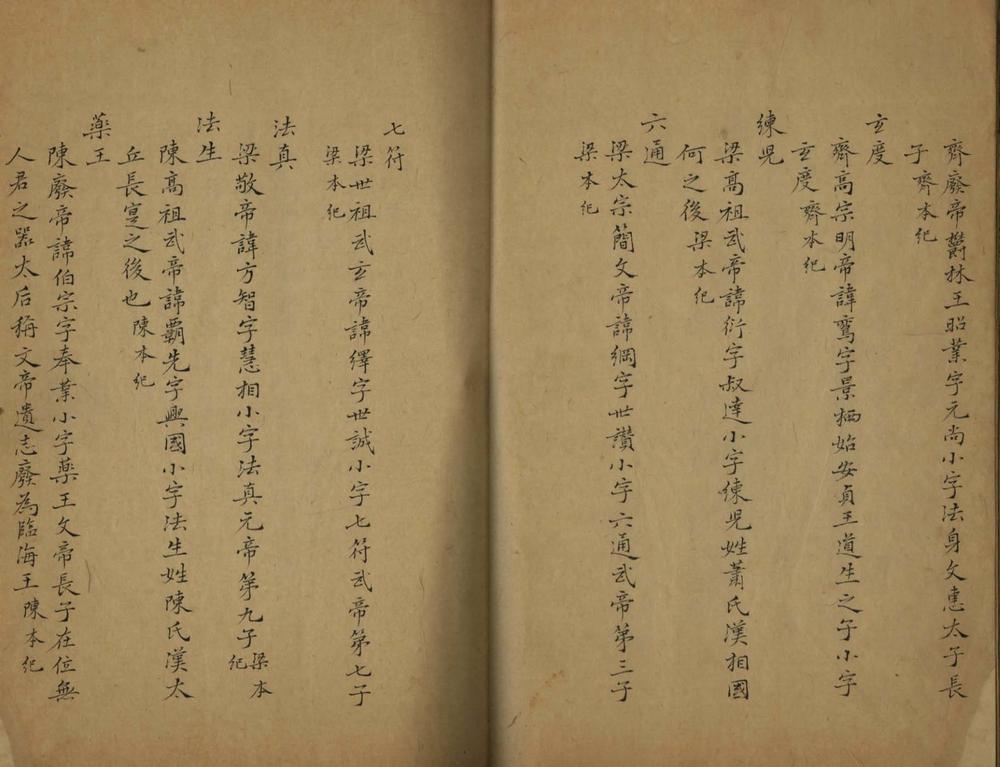 齊廢帝欝林王昭業字元尚小字法身文惠太子長
子齊本紀
玄度
齊高宗明帝諱鸞字景栖始安貞王道生之子小字
玄度齊本紀
練児
梁高祖武帝諱衍字叔達小字練児姓蕭氏漢相國
何之後梁本紀
六通
梁太宗蕳文帝諱綱字世讃小字六通武帝第三子
梁本紀
七符
梁世祖武玄帝諱繹字世誠小字七符武帝第七子
梁本紀
法真
梁敬帝諱方智字慧相小字法真元帝第九子梁本
紀
法生
陳高祖武帝諱覇先字興國小字法生姓陳氏漢太
丘長寔之後也陳本紀
藥王
陳廢帝諱伯宗字奉業小字藥王文帝長子在位無
人君之器太后稱文帝遺志廢為臨海王陳本紀